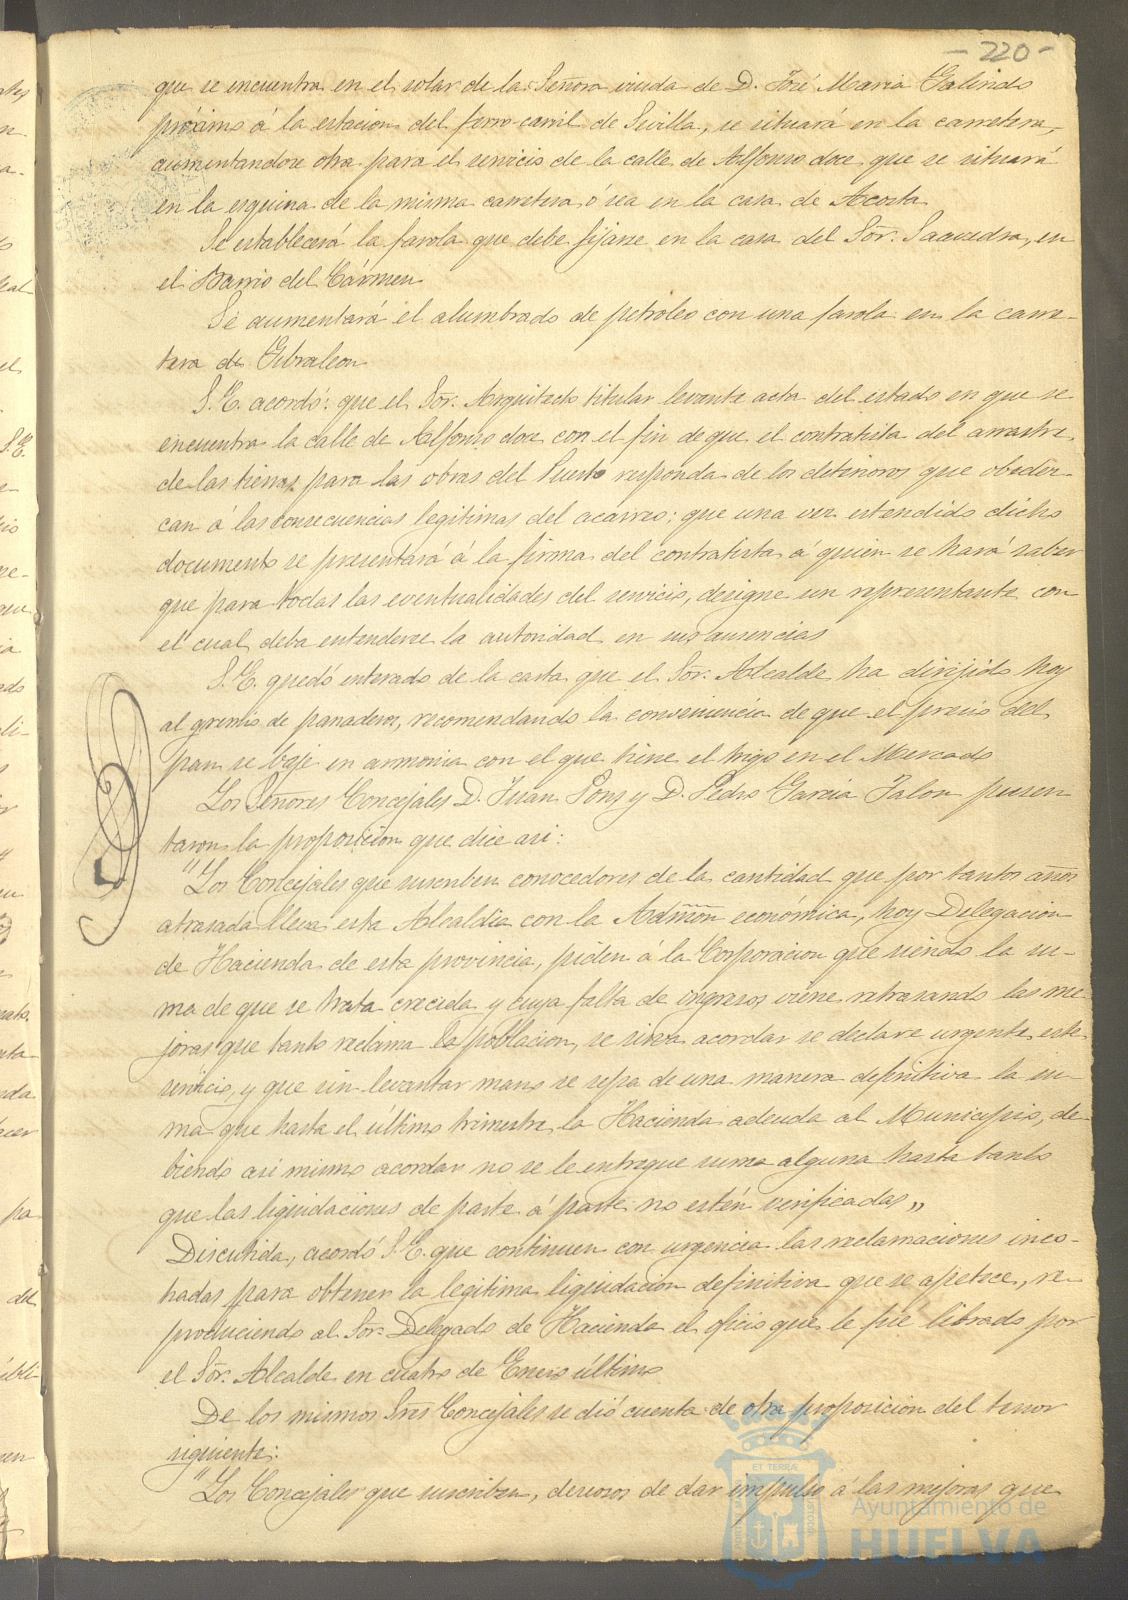 - 220 -
que se encuentra en el solar de la Señora viuda de D. José Maria Galindo
próximo á la estacion del ferro-carril de Sevilla, se situará en la carretera,
aumentandose otra para el servicio de la calle de Alfonso doce que se situará
en la esquina de la misma carretera ó sea en la casa de Acosta
Se establecerá la farola que debe fijarse en la casa del Sõr. Saavedra, en
el Barrio del Cármen
Se aumentará el alumbrado de petroleo con una farola en la carre-
tera de Gibraleon
S.E. acordó: que el Sõr. Arquitecto titular levante acta del estado en que se
encuentra la calle de Alfonso doce con el fin de que el contratista del arrastre
de las tierras para las obras del Puerto responda de los deterioros que obedez-
can á las consecuencias legitimas del acarreo: que una vez estendido dicho
documento se presentará á la firma del contratista á quien se hará saber
que para todas las eventualidades del servicio, designe un representante con
el cual deba entenderse la autoridad en sus ausencias
S.E. quedó enterado de la carta que el Sõr. Alcalde ha dirijido hoy
al gremio de panaderos, recomendando la conveniencia de que el precio del
pan se baje en armonia con el que tiene el trigo en el Mercado
Los Señores Concejales D. Juan Pons y D. Pedro Garcia Jalon presen
taron la proposicion que dice asi:
"Los Concejales que suscriben conocedores de la cantidad que por tantos años
atrasada lleva esta Alcaldia con la Admõn económica, hoy Delegacion
de Hacienda de esta provincia, piden á la Corporacion que siendo la su-
ma de que se trata crecida y cuya falta de ingresos viene retrasando las me
joras que tanto reclama la poblacion, se sirva acordar se declare urgente este
servicio, y que sin levantar mano se sepa de una manera definitiva la su-
ma que hasta el último trimestre la Hacienda adeuda al Municipio, de
biendo asi mismo acordar no se le entregue suma alguna hasta tanto
que las liquidaciones de parte á parte no estén verificadas„
Discutida, acordó S.E. que continuen con urgencia las reclamaciones inco-
hadas para obtener la legitima liquidacion definitiva que se apetece, re-
produciendo al Sõr. Delegado de Hacienda el oficio que le fué librado por
el Sõr. Alcalde en cuatro de Enero último
De los mismos Sres Concejales se dió cuenta de otra proposicion del tenor
siguiente:
"Los Concejales que suscriben, deseosos de dar impulso á las mejoras que
Ayuntamiento de
HUELVA